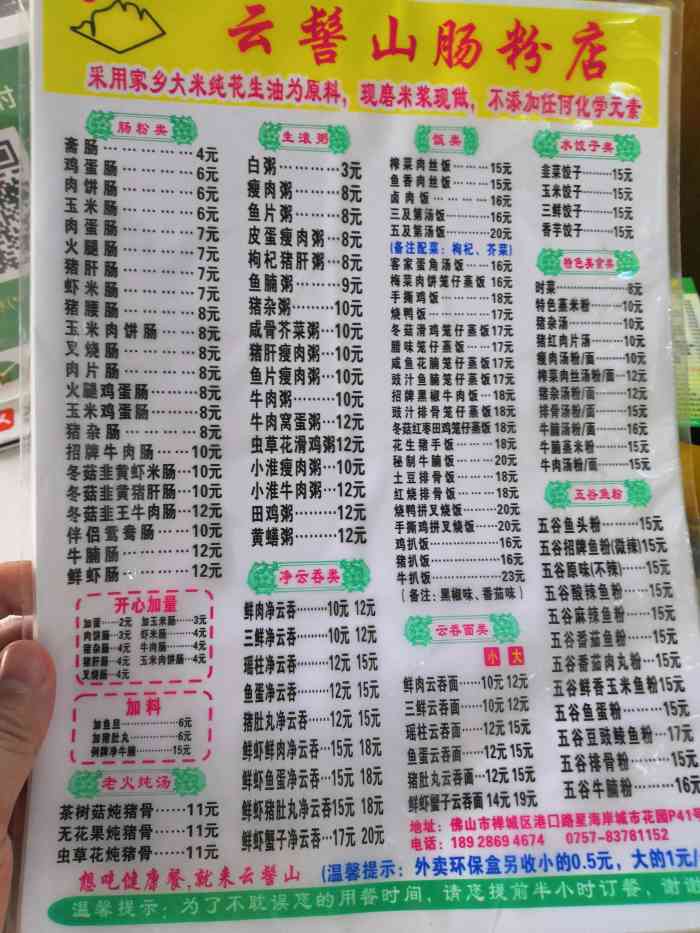 云髻山肠粉店
采用家乡大米纯花生油为原料，现磨米浆现做，不添加任何化学元素
肠粉类
斋肠……………4元
鸡蛋肠…………6元
肉饼肠…………6元
玉米肠…………6元
肉蛋肠…………7元
火腿肠…………7元
猪肝肠…………7元
虾米肠…………7元
猪腰肠…………8元
玉米肉饼肠……8元
叉烧肠…………8元
肉片肠…………8元
火腿鸡蛋肠……8元
玉米鸡蛋肠……8元
猪杂肠…………8元
招牌牛肉肠……10元
冬菇韭黄虾米肠…10元
冬菇韭黄猪肝肠…10元
冬菇韭王牛肉肠…12元
伴侣鸳鸯肠……10元
牛腩肠…………12元
鲜虾肠…………12元
开心加量
加蛋……2元 加玉米肠……3元
肉饼肠…3元 虾米肠……4元
猪杂肠…4元 牛肉肠……4元
猪肝肠…4元 玉米肉饼肠…4元
叉烧肠…4元
加料
加鱼旦……………6元
加猪肚丸…………6元
例牌净牛腩………15元
老火炖汤
茶树菇炖猪骨……11元
无花果炖猪骨……11元
虫草花炖猪骨……11元
想吃健康餐,就来云髻山
生滚粥
白粥…………3元
瘦肉粥………8元
鱼片粥………8元
皮蛋瘦肉粥…8元
枸杞猪肝粥…8元
鱼腩粥………9元
猪杂粥………10元
咸骨芥菜粥…10元
猪肝瘦肉粥…10元
鱼片瘦肉粥…10元
牛肉粥………10元
牛肉窝蛋粥…12元
虫草花滑鸡粥12元
小淮瘦肉粥…10元
小淮牛肉粥…12元
田鸡粥………12元
黄鳝粥………12元
净云吞类
鲜肉净云吞………10元 12元
三鲜净云吞………10元 12元
瑶柱净云吞………12元 15元
鱼蛋净云吞………12元 15元
猪肚丸净云吞……12元 15元
鲜虾鲜肉净云吞…15元 18元
鲜虾鱼蛋净云吞…15元 18元
鲜虾猪肚丸净云吞15元 18元
鲜虾蟹子净云吞…17元 20元
饭类
榨菜肉丝饭………15元
鱼香肉丝饭………15元
卤肉饭……………16元
三及第汤饭………16元
五及第汤饭………20元
(备注配菜：枸杞、芥菜)
客家蛋角汤饭……16元
梅菜肉饼笼仔蒸饭 16元
手撕鸡饭…………18元
烧鸭饭……………17元
冬菇滑鸡笼仔蒸饭17元
腊味笼仔蒸饭……17元
咸鱼花腩笼仔蒸饭17元
豉汁鱼腩笼仔蒸饭17元
招牌黑椒牛肉饭…18元
豉汁排骨笼仔蒸饭18元
冬菇红枣田鸡笼仔蒸饭18元
花生猪手饭………18元
秘制牛腩饭………18元
土豆排骨饭………18元
红烧排骨饭………18元
烧鸭拼叉烧饭……20元
手撕鸡拼叉烧饭…20元
鸡扒饭……………16元
猪扒饭……………16元
牛扒饭……………23元
(备注：黑椒味、番茄味)
云吞面类
小 大
鲜肉云吞面………10元 12元
三鲜云吞面………10元 12元
瑶柱云吞面………12元 15元
鱼蛋云吞面………12元 15元
猪肚丸云吞面……12元 15元
鲜虾蟹子云吞面 14元 19元
水饺子类
韭菜饺子………15元
玉米饺子………15元
三鲜饺子………15元
香芋饺子………15元
特色美食类
时菜………………8元
特色蒸米粉………10元
猪杂汤……………10元
猪红肉片汤………10元
瘦肉汤粉/面……10元
榨菜肉丝汤粉/面…12元
猪杂汤粉/面……12元
排骨汤粉/面……15元
牛腩汤粉/面……16元
牛腩蒸米粉………15元
牛肉汤粉/面……15元
五谷鱼粉
五谷鱼头粉………15元
五谷招牌鱼粉(微辣)15元
五谷原味(不辣)……15元
五谷酸辣鱼粉……15元
五谷麻辣鱼粉……15元
五谷番茄鱼粉……15元
五谷番茄肉丸粉…15元
五谷鲜香玉米鱼粉15元
五谷鱼蛋粉………15元
五谷豆豉鲮鱼粉…17元
五谷排骨粉………15元
五谷牛腩粉………16元
地址：佛山市禅城区港口路星海岸城市花园P41号
电话：189 2869 4674 0757-83781152
(温馨提示：外卖环保盒另收小的0.5元，大的1元/
温馨提示：为了不耽误您的用餐时间，请您提前半小时订餐，谢谢